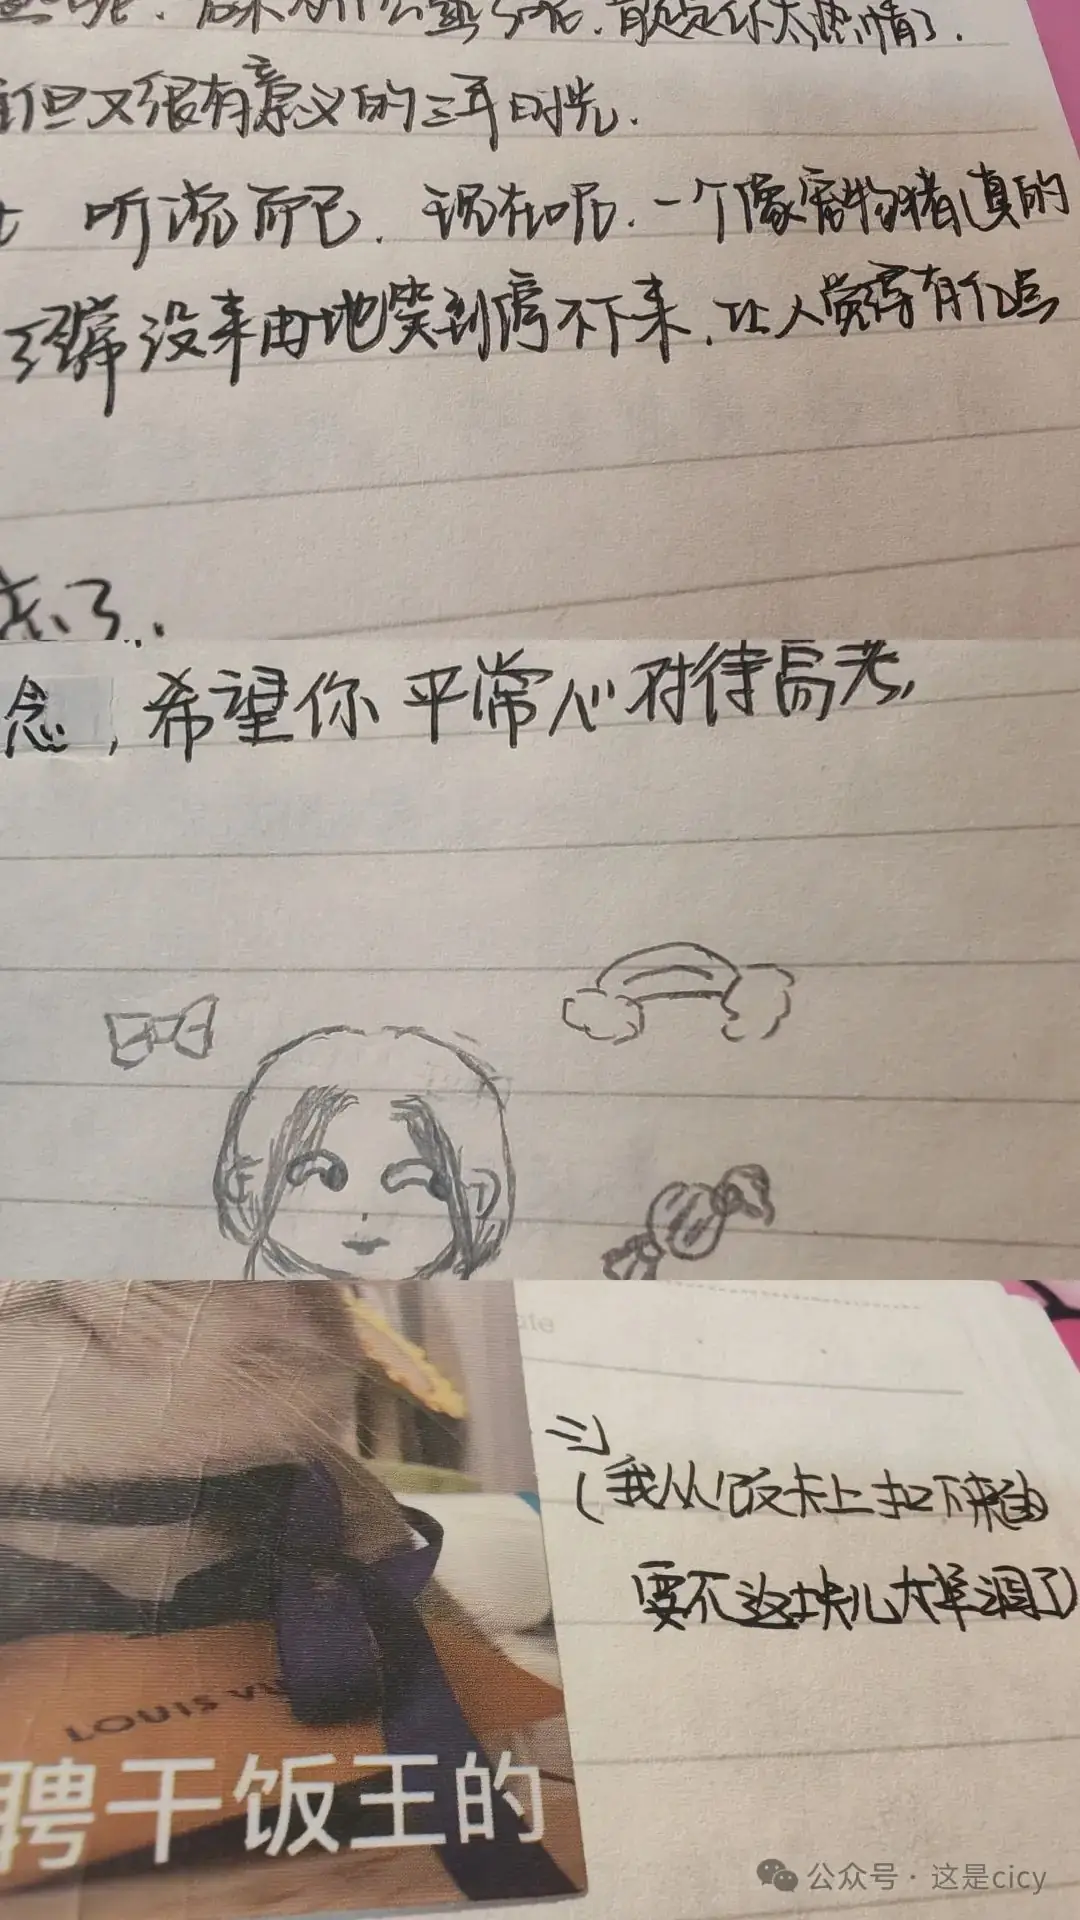 后来为什么熟了呢.肯定你太热情了.
但又很有意义的三年时光.
听说而已.现在呢.一个像宠物猪,真的
经常没来由地笑到停不下来.让人觉得有亿点
去了.
念,希望你平常心对待高考,
(我从饭卡上扣下来的
要不这块儿太单调了)
LOUIS VU
聘干饭王的
公众号·这是cicy